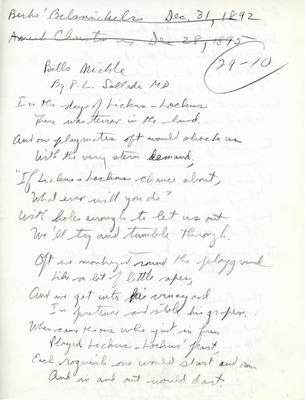 Berks' Belsnickels Dec. 31, 1892
Dec 28, 1895
29-10
Bells Nickle
By F. L. Sallade MD
In the days of Lockus-Lockus
Fine was terror in the land.
And our playmates oft would shock us
With the very stern demand,
"If Lickus-Lockus chance about,
What ever will you do?"
With holes enough to let us out
We'll try and tumble through.
Oft we monkeyed round the playground
Like a lot of little apes,
And we got into his vineyard
In pretense and stole his grapes.
When came the one who just in fun
Played Lockus-Lockus' part,
Each roguish one would start and run
And in and out would dart